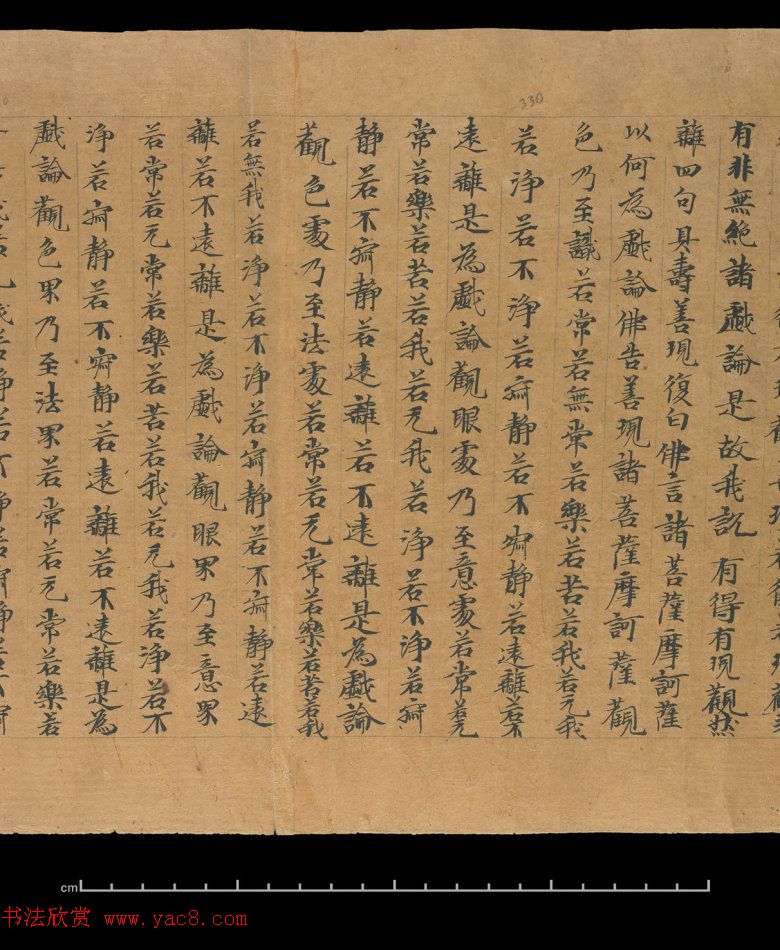 有非無絶諸戲論是故我說有得有現觀然
離四句具壽善現復白佛言諸菩薩摩訶薩
以何為戲論佛告善現諸菩薩摩訶薩觀
色乃至識若常若無常若樂若苦若我若无我
若淨若不淨若寂静若不寂静若遠離若不
遠離是為戲論觀眼處乃至意處若常若无
常若樂若苦若我若无我若淨若不淨若寂
静若不寂静若遠離若不遠離是為戲論
觀色處乃至法處若常若无常若樂若苦若我
若無我若淨若不淨若寂静若不寂静若遠
離若不遠離是為戲論觀眼界乃至意界
若常若无常若樂若苦若我若无我若淨若不
淨若寂静若不寂静若遠離若不遠離是為
戲論觀色界乃至法界若常若无常若樂若
330
cm
书法欣赏 www.yac8.com